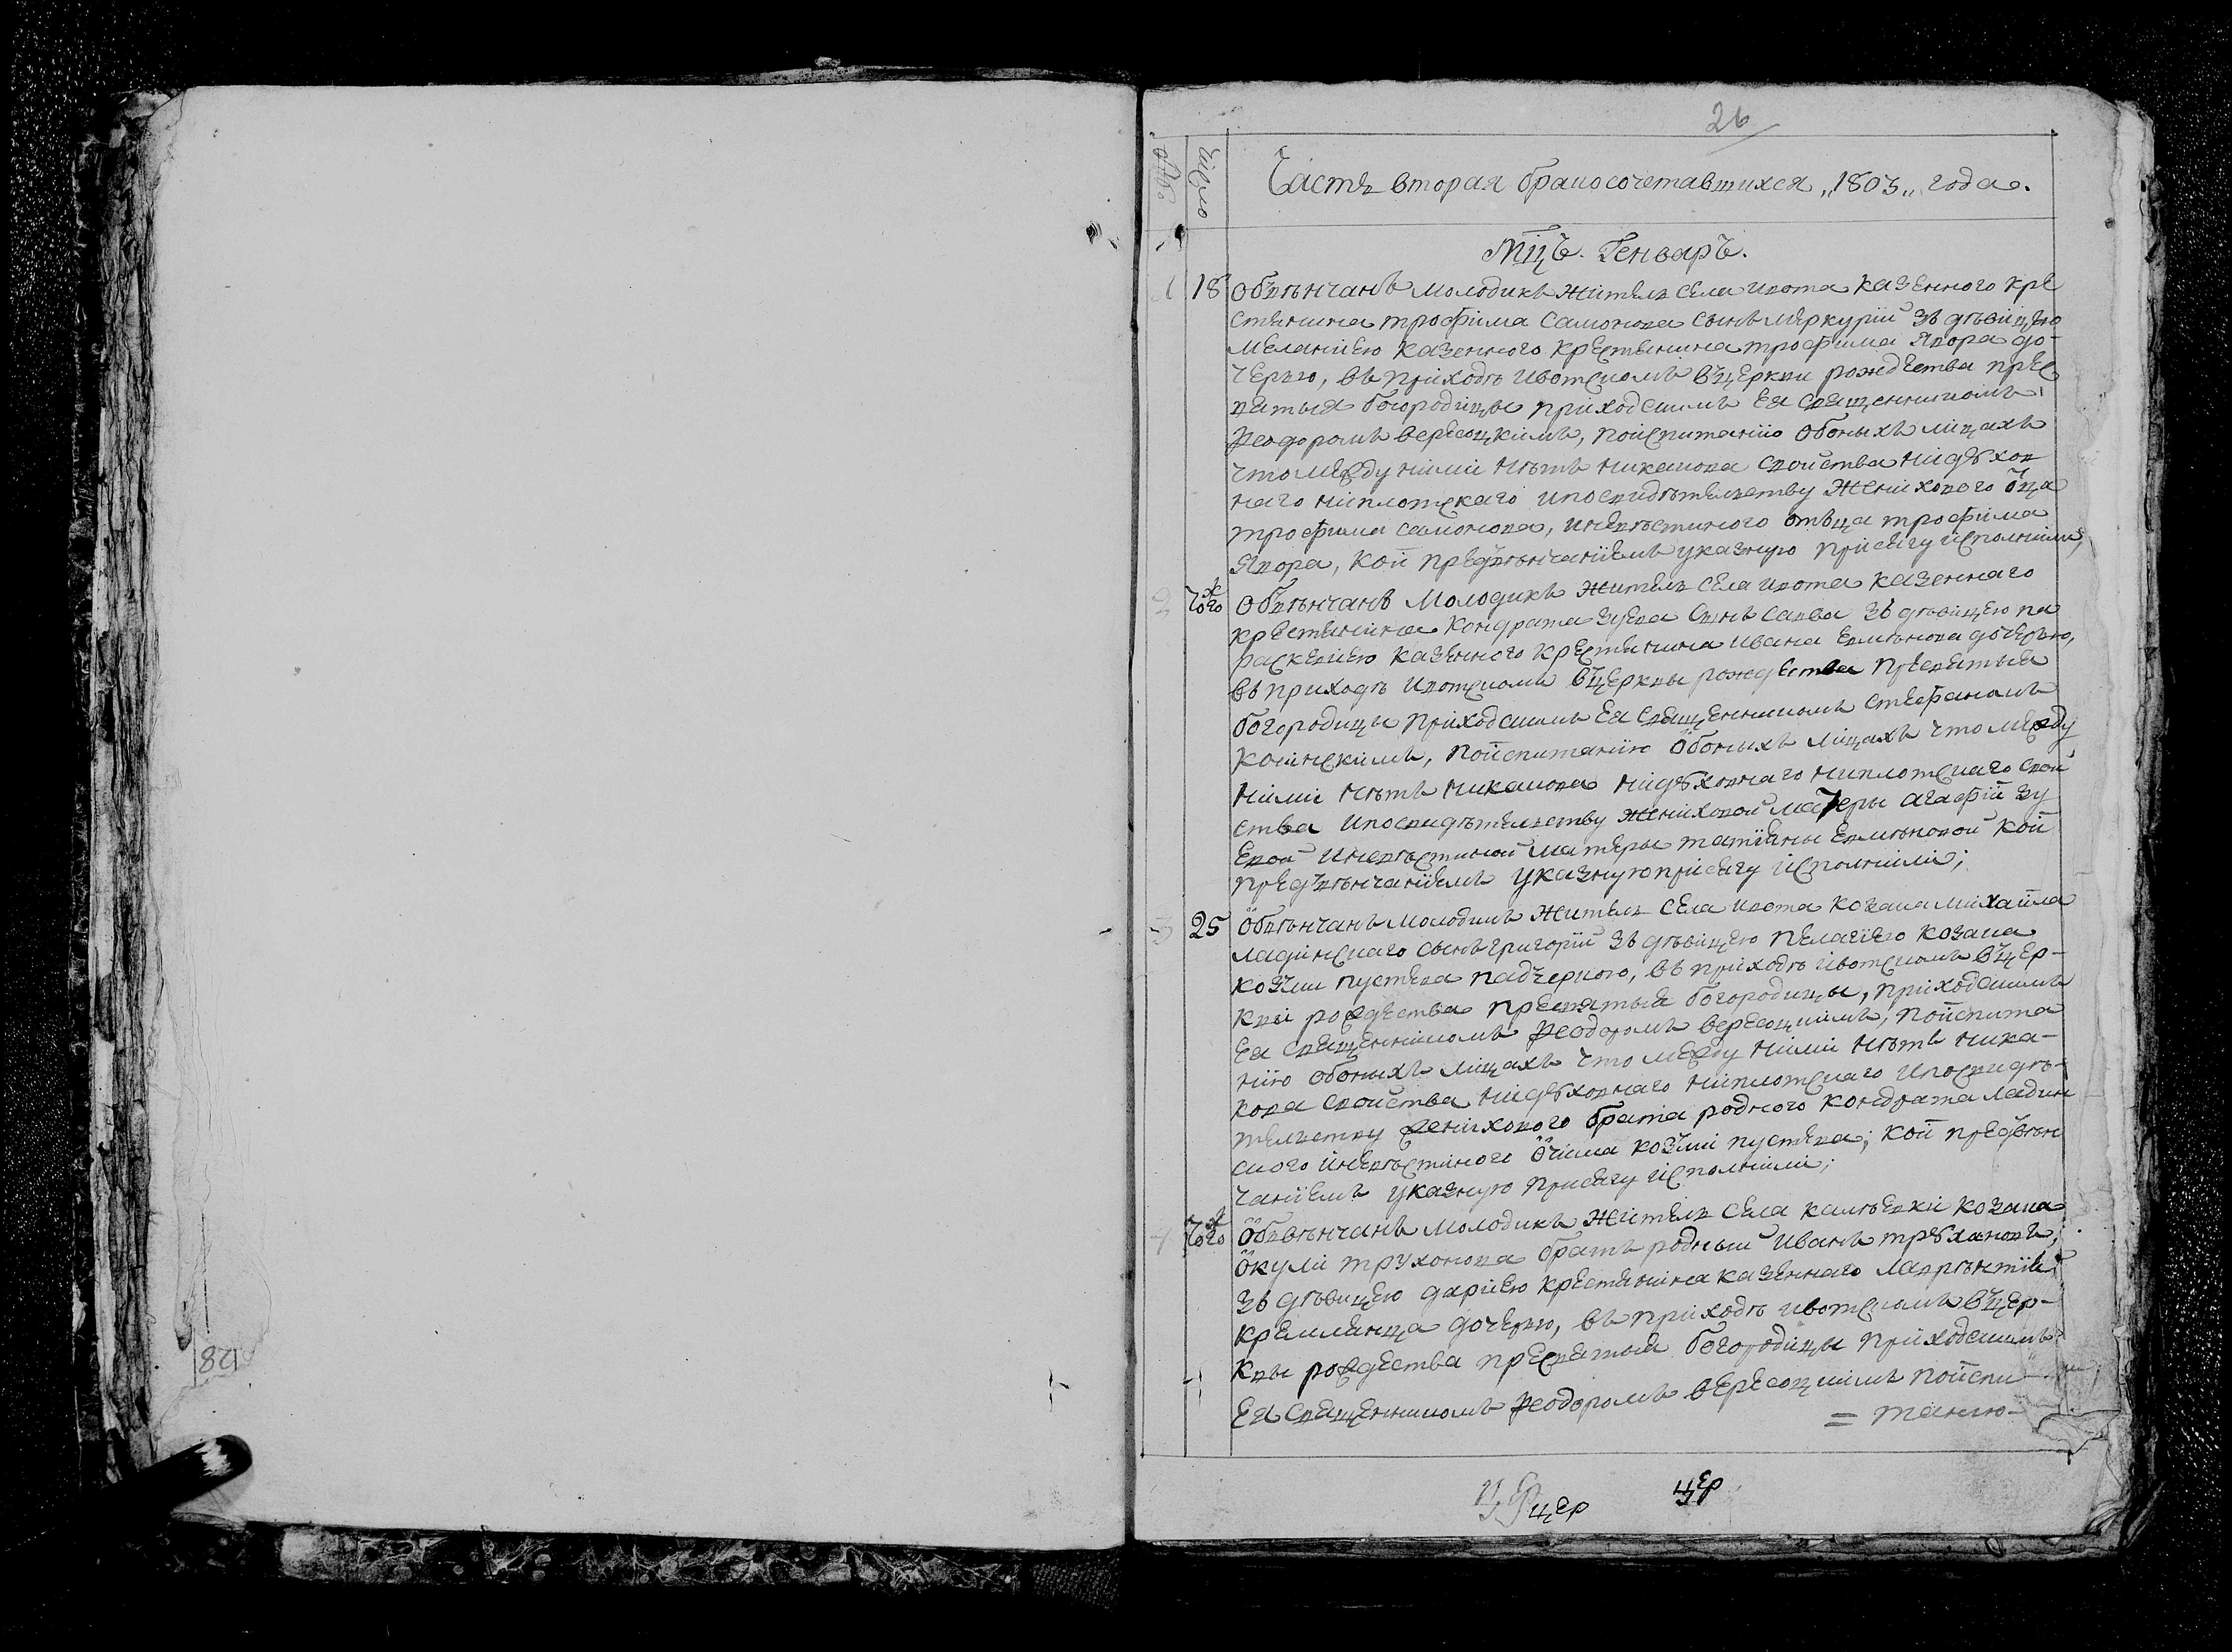 26
число
Часть вторая бракосочетавшихся „1803„ года.
Мцъ. Генваръ.
1 18 Обвѣнчанъ молодикъ житель села Ивота казенного кре
стянина трофима Самонова сынъ меркурий зъ дѣвицею
меланиею казенного крестянина трофима Явора до-
черью, въ приходѣ ивотскомъ въ церкви рождества прес
вятыя богородицы приходскимъ ея священникомъ
Феодоромъ вересоцкимъ, по испитанию обоныхъ лицахъ
что между ними нѣтъ никакова свойства ни духов
наго ни плотскаго и по свидѣтельству женихового оца
трофима самонова, и невѣстиного отъца трофима
Явора, кои предвѣнчаниемъ указную присягу исполнили;
2 Тогож Обвѣнчанъ молодикъ житель села ивота казеннаго
крестянина кондрата зуева сынъ савва зъ дѣвицею па
раскевиею казенного крестянина ивана емлѣнова дочерью,
въ приходѣ ивотскомъ въ церквы рождества пресвятыя
богородицы приходскимъ ея священникомъ стефаномъ
конискимъ, по испитанию обоныхъ лицахъ что между
ними нѣтъ никакова ни духовнаго ни плотскаго свой
ства и по свидѣтельству жениховой матеры агафии зу
евой и невѣстиной матеры татияны емлѣновой кои
предвѣнчаниемъ указную присягу исполнили;
3 25 Обвѣнчанъ молодикъ житель села ивота козака михайла
ладинскаго сынъ григорий зъ дѣвицею пелагиею козака
козми пустева падчеркою, въ приходѣ ивотскомъ въ цер-
кви рождества пресвятыя богородицы, приходскимъ
ея священникомъ Феодоромъ вересоцкимъ, по испита
нию обоныхъ лицахъ что между ними нѣтъ ника-
кова свойства ни духовнаго ни плотскаго и по свидѣ-
тельству женихового брата родного кондрата ладин
ского и невѣстиного очима козми пустева; кои предвѣн
чаниемъ указную присягу исполнили;
4 Тогож Обвѣнчанъ молодикъ житель села калѣевки козака
Окули трухонова братъ родный иванъ трухановъ,
зъ дѣвицею дариею крестянина казеннаго лаврѣнтия
кремлянца дочерью, въ приходѣ ивотскомъ въ цер-
квы рождества пресвятыя богородицы приходскимъ
ея священникомъ Феодоромъ вересоцкимъ по испи
= танию
цер
цер
цер
128